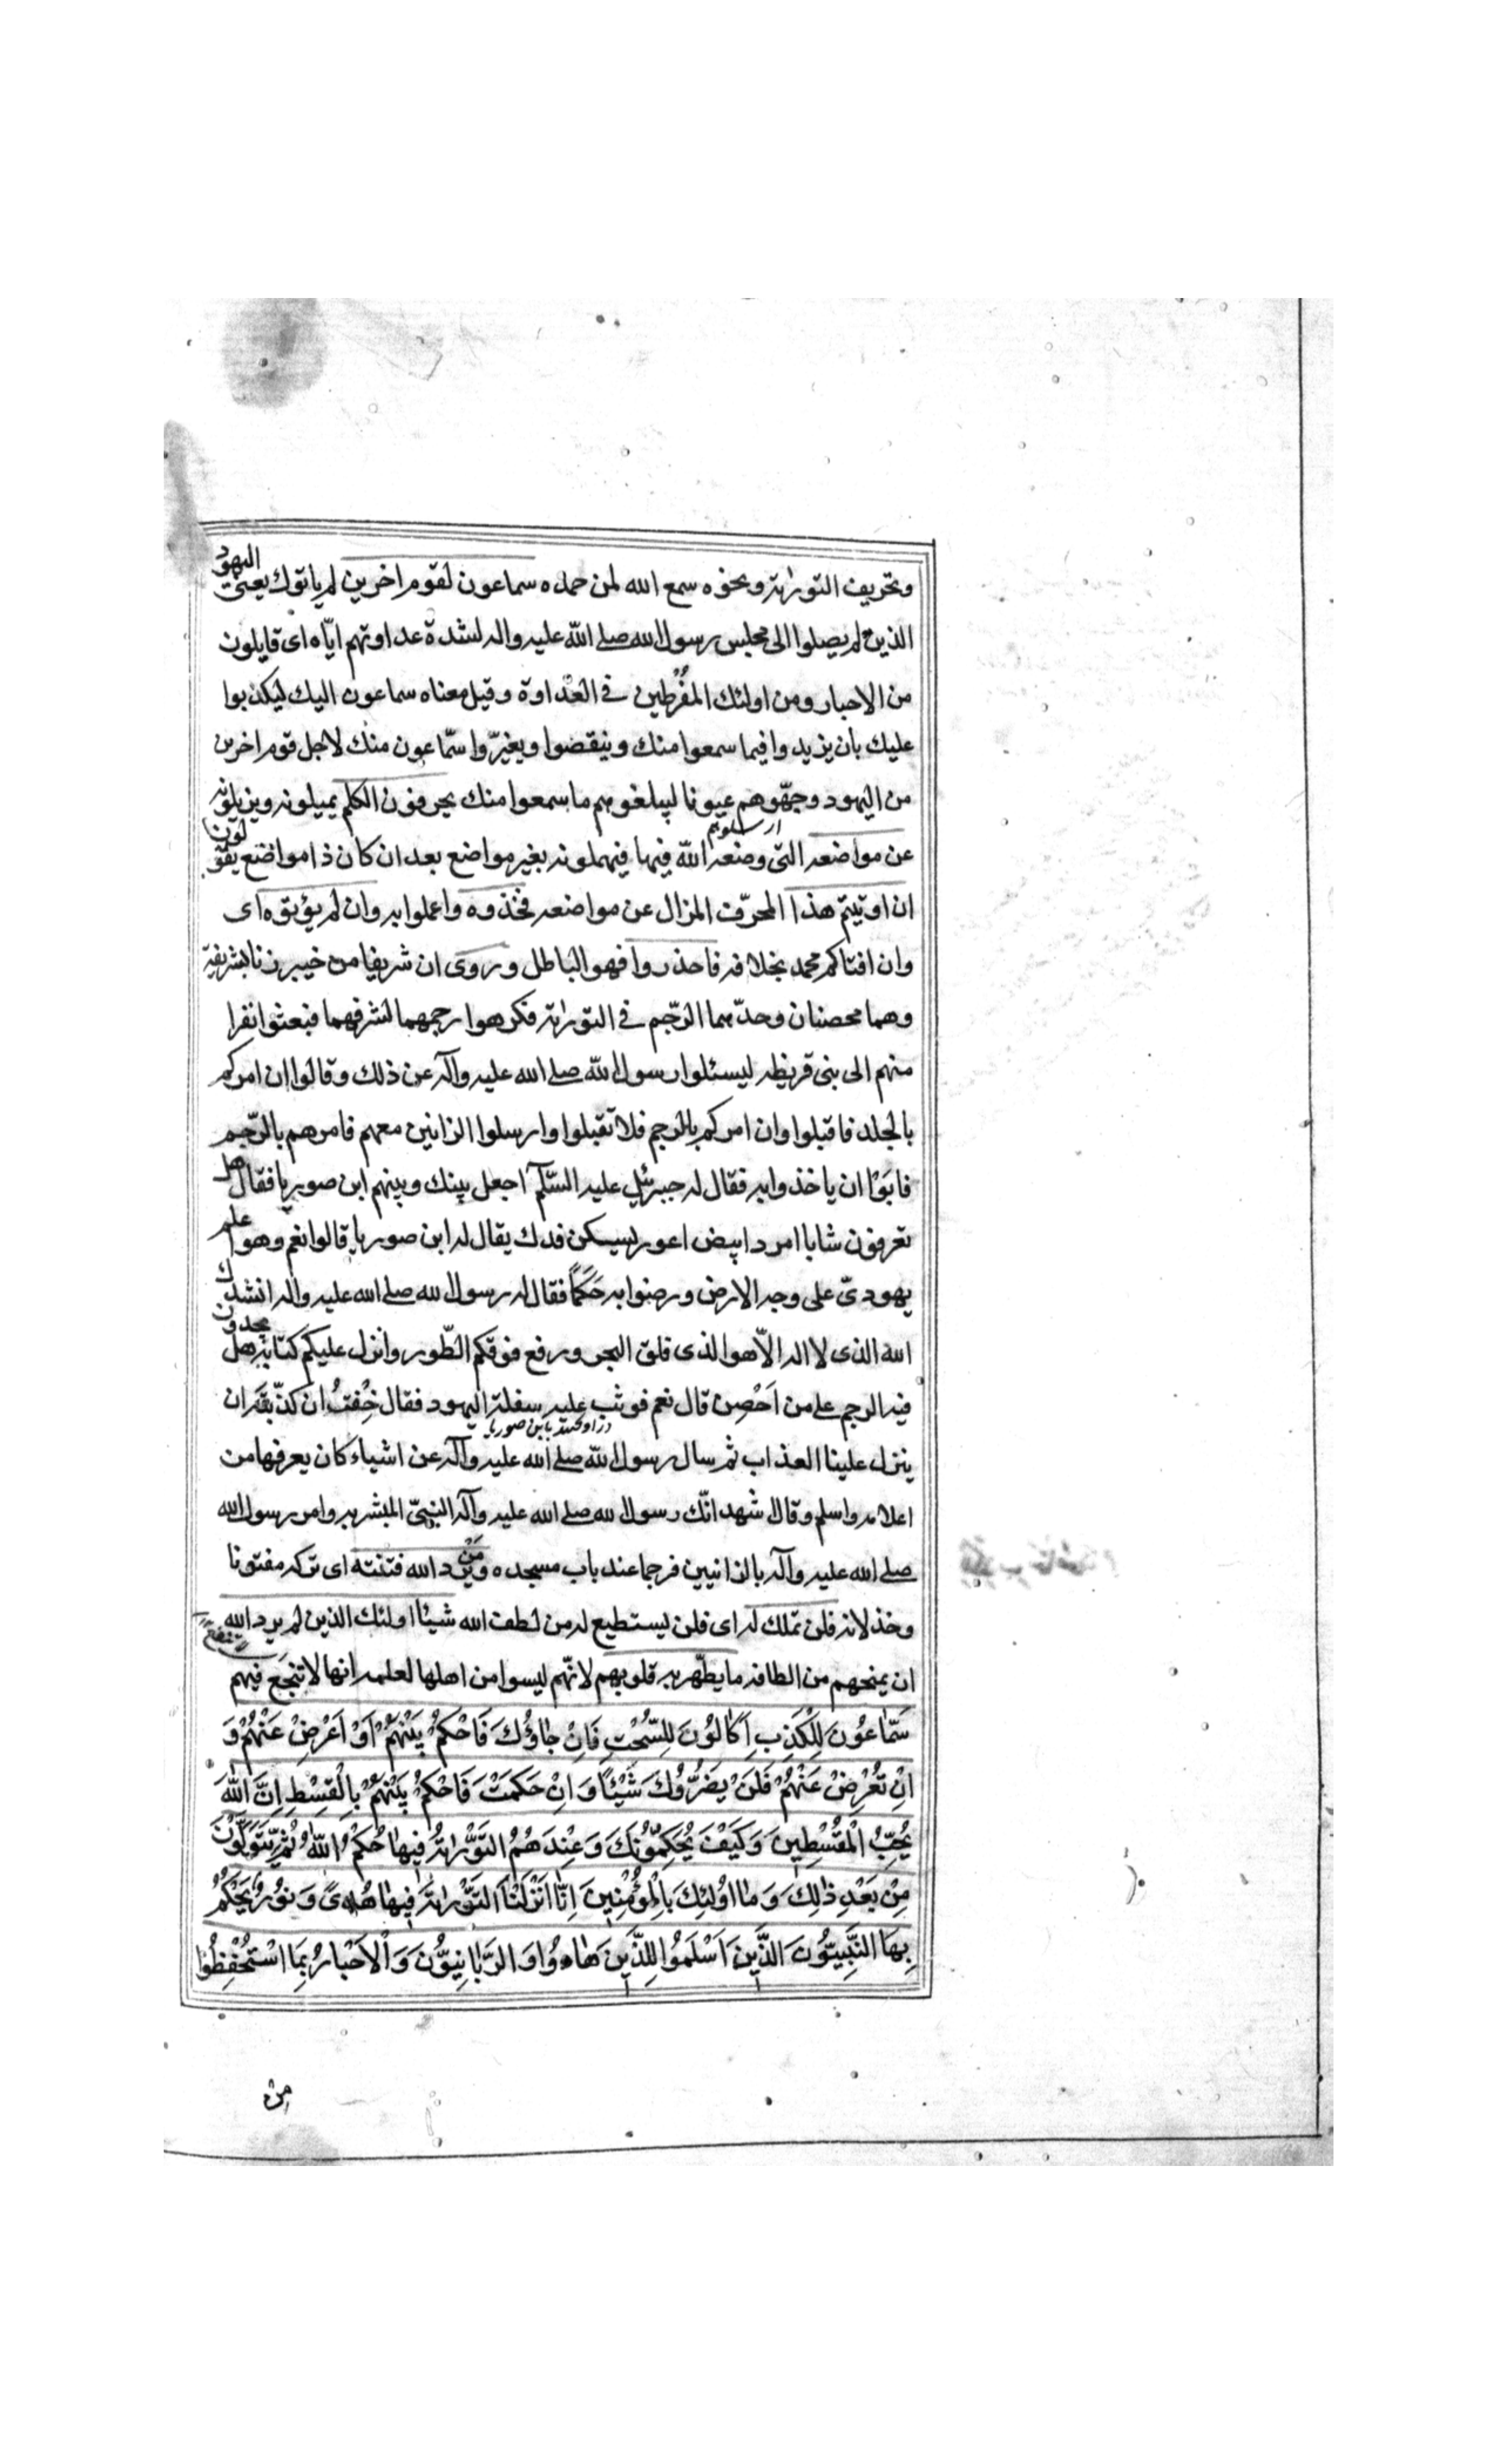 وتحريف التورٰىة ونحوه سمع الله لمن حمده سماعون لقوم اخرين لم ياتوك يعنى اليهود
الذين لم يصلوا الى مجلس رسول الله صلى الله عليه واله لشدة عداوتهم ايّاه اى قايلون
من الاحبار ومن اولئك المفرطين فى العداوة وقيل معناه سماعون اليك ليكذبوا
عليك بان يزيدوا فيما سمعوا منك وينقضوا ويغيّروا سمّاعون منك لاجل قوم اخرين
من اليهود وجّهوهم عيونا ليبلغوهم ما سمعوا منك يحرفون الكلم يميلونه ويزيلونه
عن مواضعه التى وضعه الله فيها فيهملونه بغير مواضع بعد ان كان ذا مواضع يقولون
ان اوتيتم هذا المحرّف المزال عن مواضعه فخذوه واعملوا به وان لم تؤتوه اى
وان افتاكم محمد بخلافه فاحذروا فهو الباطل وروى ان شريفا من خيبر زنا بشريفة
وهما محصنان وحدّهما الرّجم فى التورٰىة فكرهوا رجمهما لشرفهما فبعثوا نفرا
منهم الى بنى قريظه ليسئلوا رسول الله صلى الله عليه وآله عن ذلك وقالوا ان امركم
بالجلد فاقبلوا وان امركم بالرجم فلا تقبلوا وارسلوا الزانيين معهم فامرهم بالرّجم
فابوا ان ياخذوا به فقال له جبرئيل عليه السّلم اجعل بينك وبينهم ابن صوريا فقال هل
تعرفون شابا امرد ابيض اعور يسكن فدك يقال له ابن صوريا قالوا نعم وهو اعلم
يهودىّ على وجه الارض ورضوا به حَكَمًا فقال له رسول الله صلى الله عليه واله انشدك
الله الذى لا اله الّا هو الذى فلق البحر ورفع فوقكم الطّور وانزل عليكم كتابه هل تجدون
فيه الرجم على من اَحْصِن قال نعم فوثب عليه سفلة اليهود فقال خِفتُ ان كذّبته ان
ينزل علينا العذاب ثم سال رسول الله صلى الله عليه وآله عن اشياء كان يعرفها من
اعلامه واسلم وقال اشهد انّك رسول الله صلى الله عليه وآله النبىّ المبشر به وامر رسول الله
صلى الله عليه وآله بالزانيين فرجما عند باب مسجده ومَنْ يرد الله فتنته اى تركه مفتونا
وخذلانه فلن تملك له اى فلن يستطيع له من لطف الله شيئا اولئك الذين لم يرد الله
ان يمنحهم من الطافه ما يطّهر به قلوبهم لانّهم ليسوا من اهلها لعلمه انها لا تنجع فيهم
سَمّاعُونَ لِلْكَذِبِ اَكّالُونَ لِلسُّحْتِ فَاِنْ جاؤُكَ فَاحْكُمْ بَيْنَهُمْ اَوْ اَعْرِضْ عَنْهُمْ وَ
اِنْ تُعْرِضْ عَنْهُمْ فَلَنْ يَضُرُّوكَ شَيْئًا وَ اِنْ حَكَمْتَ فَاحْكُمْ بَيْنَهُمْ بِالْقِسْطِ اِنَّ اللّٰهَ
يُحِبُّ الْمُقْسِطينَ وَ كَيْفَ يُحَكِّمُونَكَ وَ عِنْدَهُمُ التَّوْرٰىةُ فيهٰا حُكْمُ اللّٰهِ ثُمَّ يَتَوَلَّوْنَ
مِنْ بَعْدِ ذٰلِكَ وَ مٰا اُولٰئِكَ بِالْمُؤْمِنينَ اِنّٰا اَنْزَلْنَا التَّوْرٰىةَ فيهٰا هُدىً وَ نُورٌ يَحْكُمُ
بِهَا النَّبِيُّونَ الَّذينَ اَسْلَمُوا لِلَّذينَ هٰادُوا وَ الرَّبّٰانِيُّونَ وَ الْاَحْبٰارُ بِمَا اسْتُحْفِظُوا
من